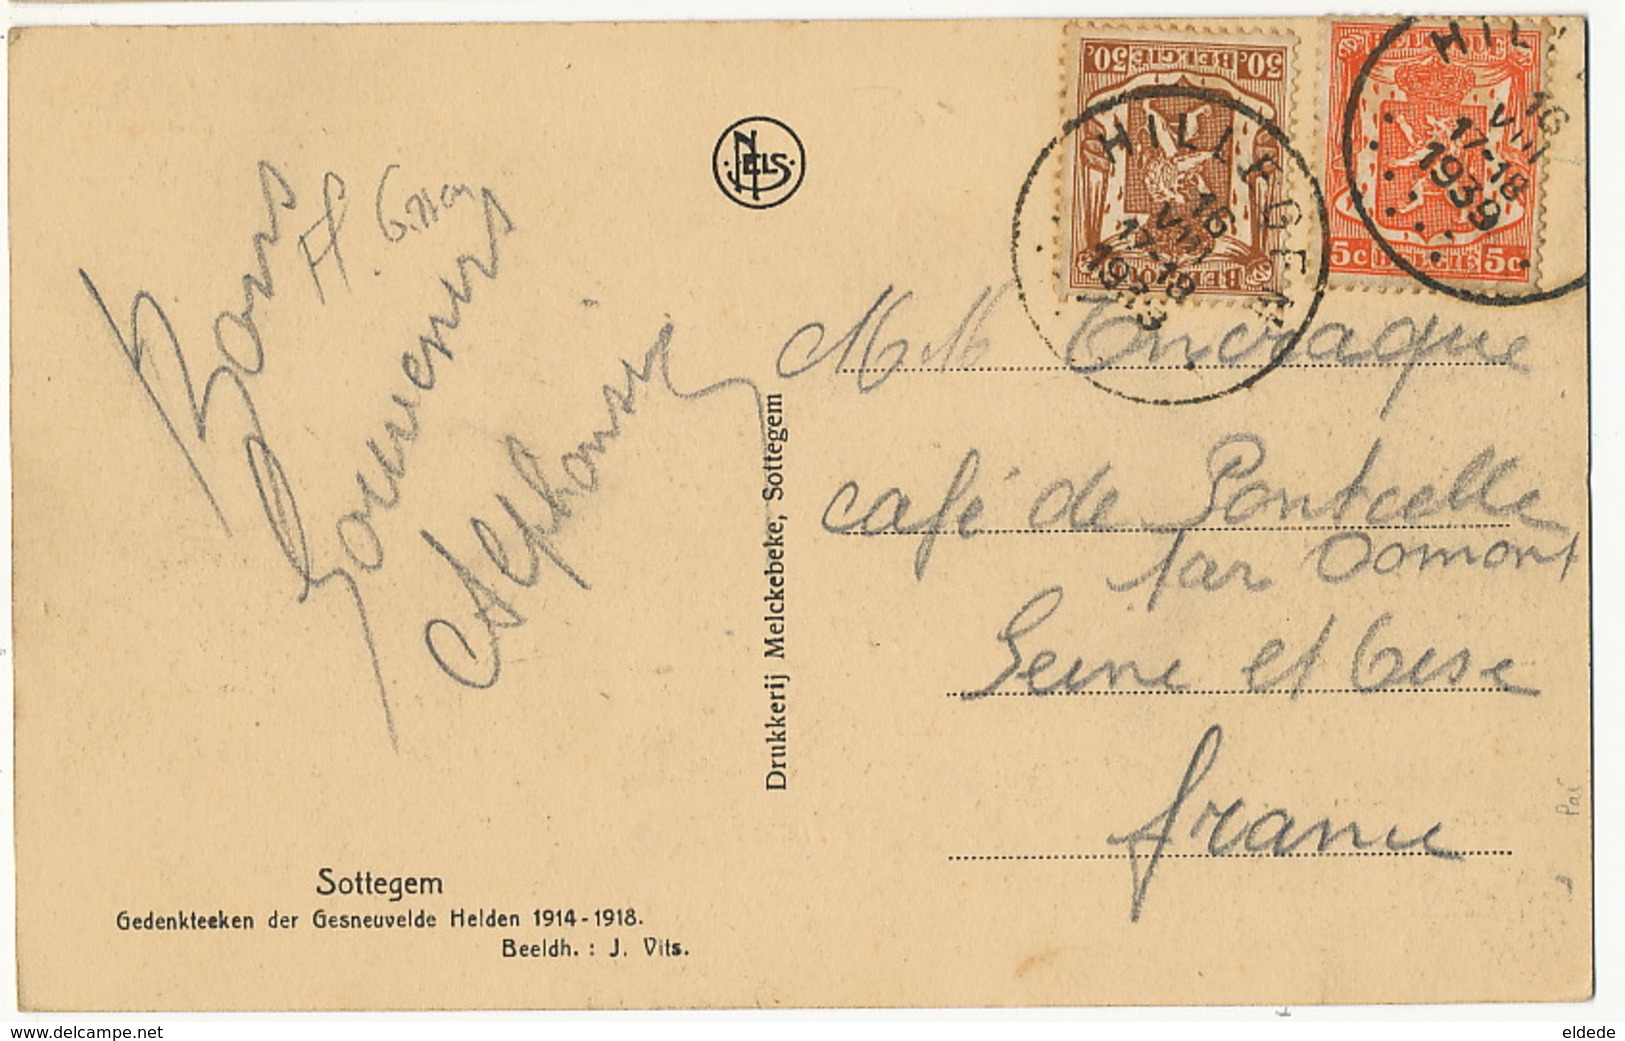 Bons
Souvenirs
Alphonse
NELS
Drukkerij Melckebeke, Sottegem
Sottegem
Gedenkteeken der Gesneuvelde Helden 1914-1918.
Beeldh. : J. Vits.
30c BELGIE 30c
HILLEGEM
16
VIII
17-18
1939
HIL
16
VIII
17-18
1939
5c BELGIE 5c
M M
café de Pontcelle
par Domont
Seine et Oise
france
eldede
delcampe.net